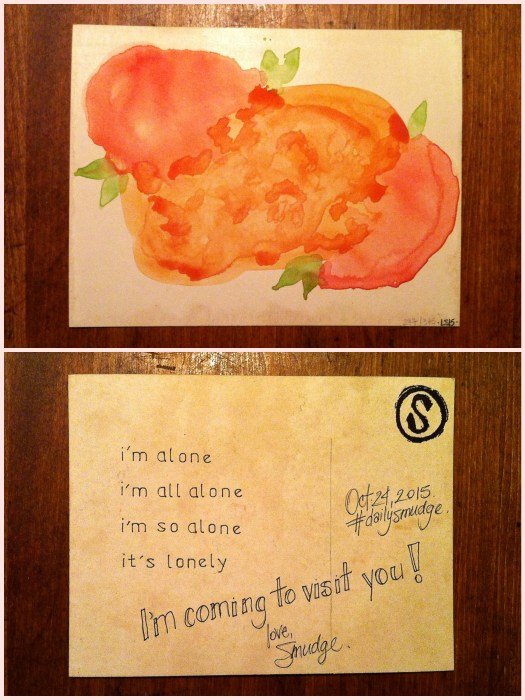 i'm alone
i'm all alone
i'm so alone
it's lonely
I'm coming to visit you!
love,
Smudge.
S
Oct.24,2015.
#dailysmudge.